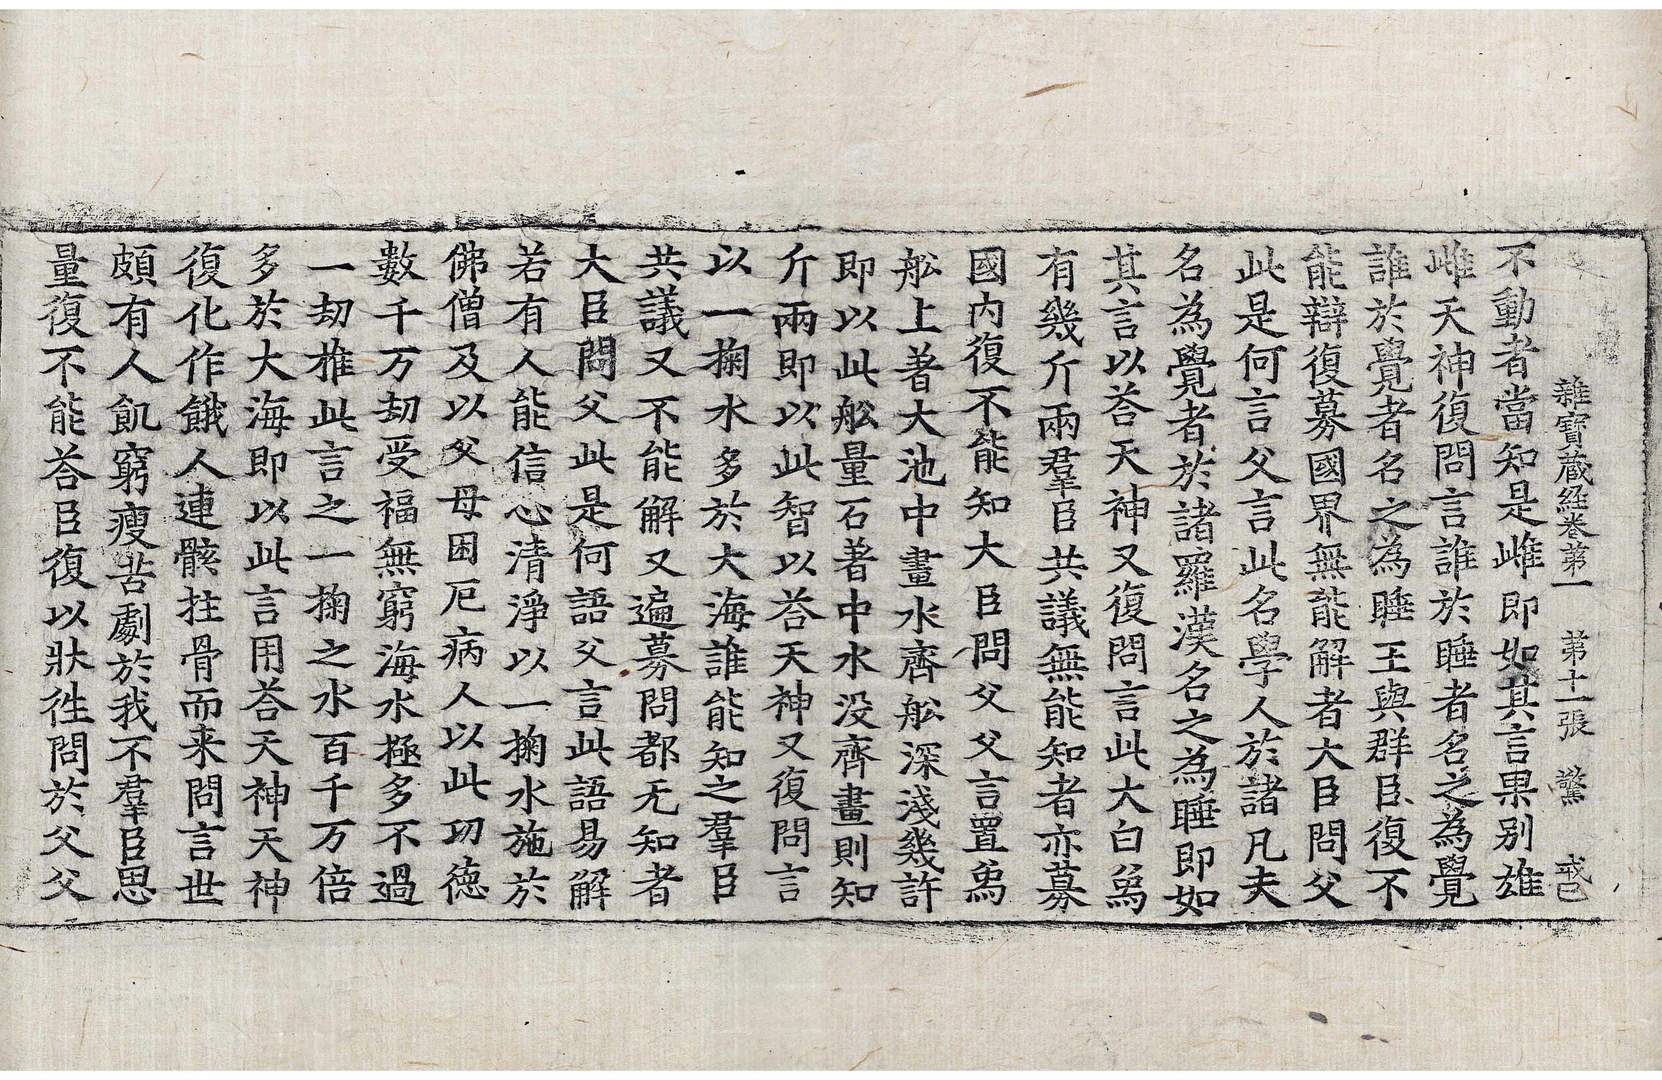 雜寶蔵経卷第一 第十一張 驚 戒巳
不動者當知是雌即如其言果别雄
雌天神復問言誰於睡者名之為覺
誰於覺者名之為睡王與群臣復不
能辯復募國界無能解者大臣問父
此是何言父言此名學人於諸凡夫
名為覺者於諸羅漢名之為睡即如
其言以荅天神又復問言此大白象
有幾斤兩羣臣共議無能知者亦募
國內復不能知大臣問父父言置象
舩上著大池中畫水齊舩深淺幾許
即以此舩量石著中水没齊畫則知
斤兩即以此智以荅天神又復問言
以一掬水多於大海誰能知之羣臣
共議又不能解又遍募問都无知者
大臣問父此是何語父言此語易解
若有人能信心清淨以一掬水施於
佛僧及以父母困厄病人以此㓛德
數千万劫受福無窮海水極多不過
一劫推此言之一掬之水百千万倍
多於大海即以此言用荅天神天神
復化作餓人連骸拄骨而来問言世
頗有人飢窮瘦苦劇於我不羣臣思
量復不能荅臣復以狀徃問於父父